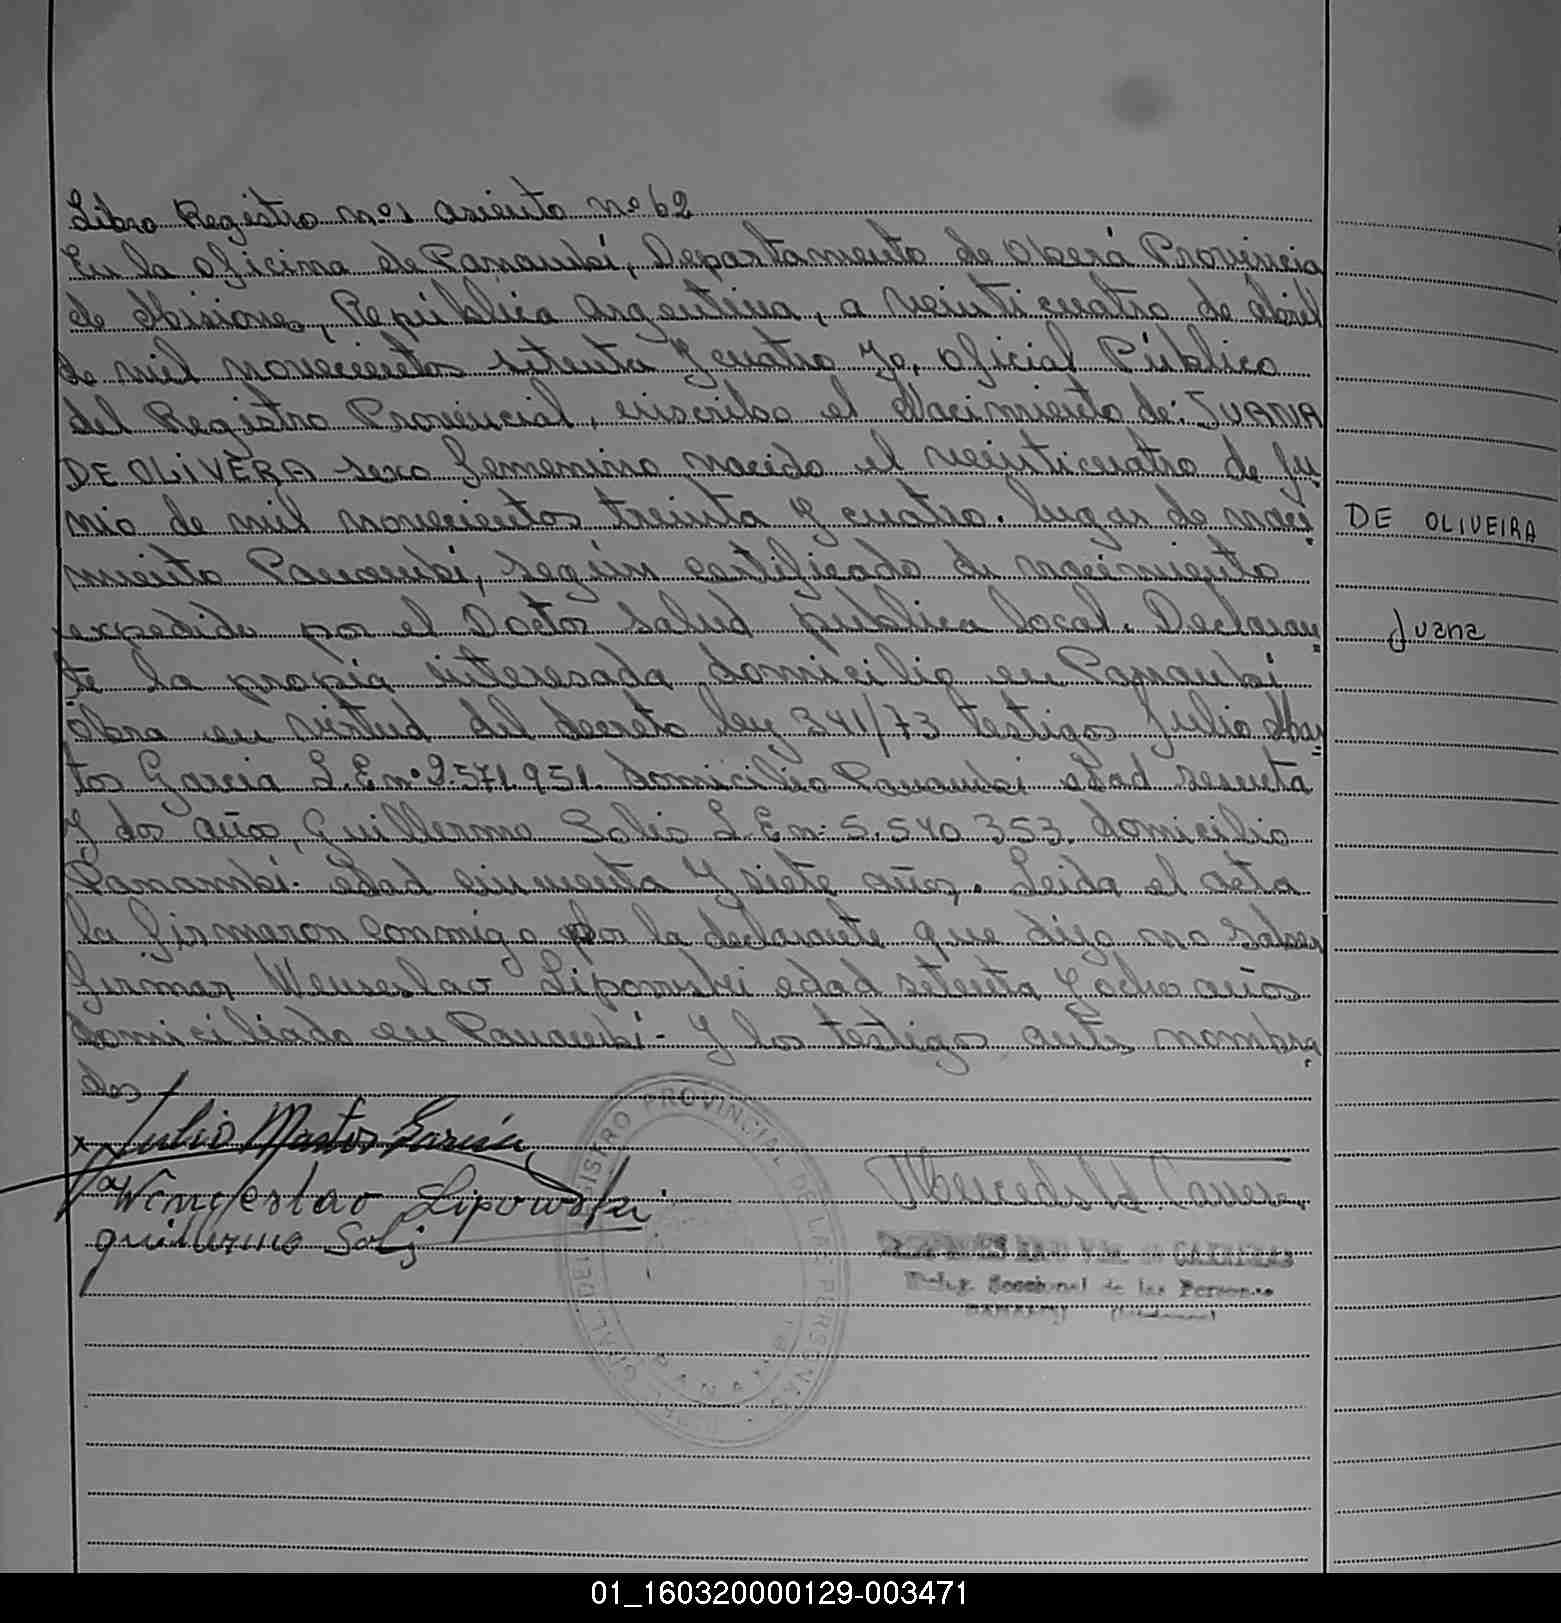 Libro Registro nº1 asiento nº 62
En la oficina de Panambí, Departamento de Oberá Provincia
de Misiones, República Argentina, a veinticuatro de Abril
de mil novecientos setenta y cuatro yo, oficial Público
del Registro Provincial, inscribo el Nacimiento de: JUANA
DE OLIVERA sexo femenino nacido el veinticuatro de Ju
nio de mil novecientos treinta y cuatro. lugar de naci
DE OLIVEIRA
miento Panambi, según certificado de nacimiento
expedido por el Doctor Salud publica local. Declaran
Juana
te la propia interesada domicilio en Panambi
obra en virtud del decreto ley 341/73 testigos Julio Mar
tos Garcia L.E nº 2.571.951. domicilio Panambi edad sesenta
y dos años, Guillermo Solis L.E n: 5.540.353. domicilio
Panambi. edad cincuenta y siete años. Leida el acta
la firmaron conmigo por la declarante que dijo no saber
firmar Wenseslao Lipowski edad setenta y ocho años
domiciliado en Panambi- y los testigos antes nombra
dos
x Julio Martos García
Wenceslao Lipowski
guillermo Solis
REGISTRO PROVINCIAL DE LAS PERSONAS
CARRERAS
Seccional de las Personas
01_160320000129-003471